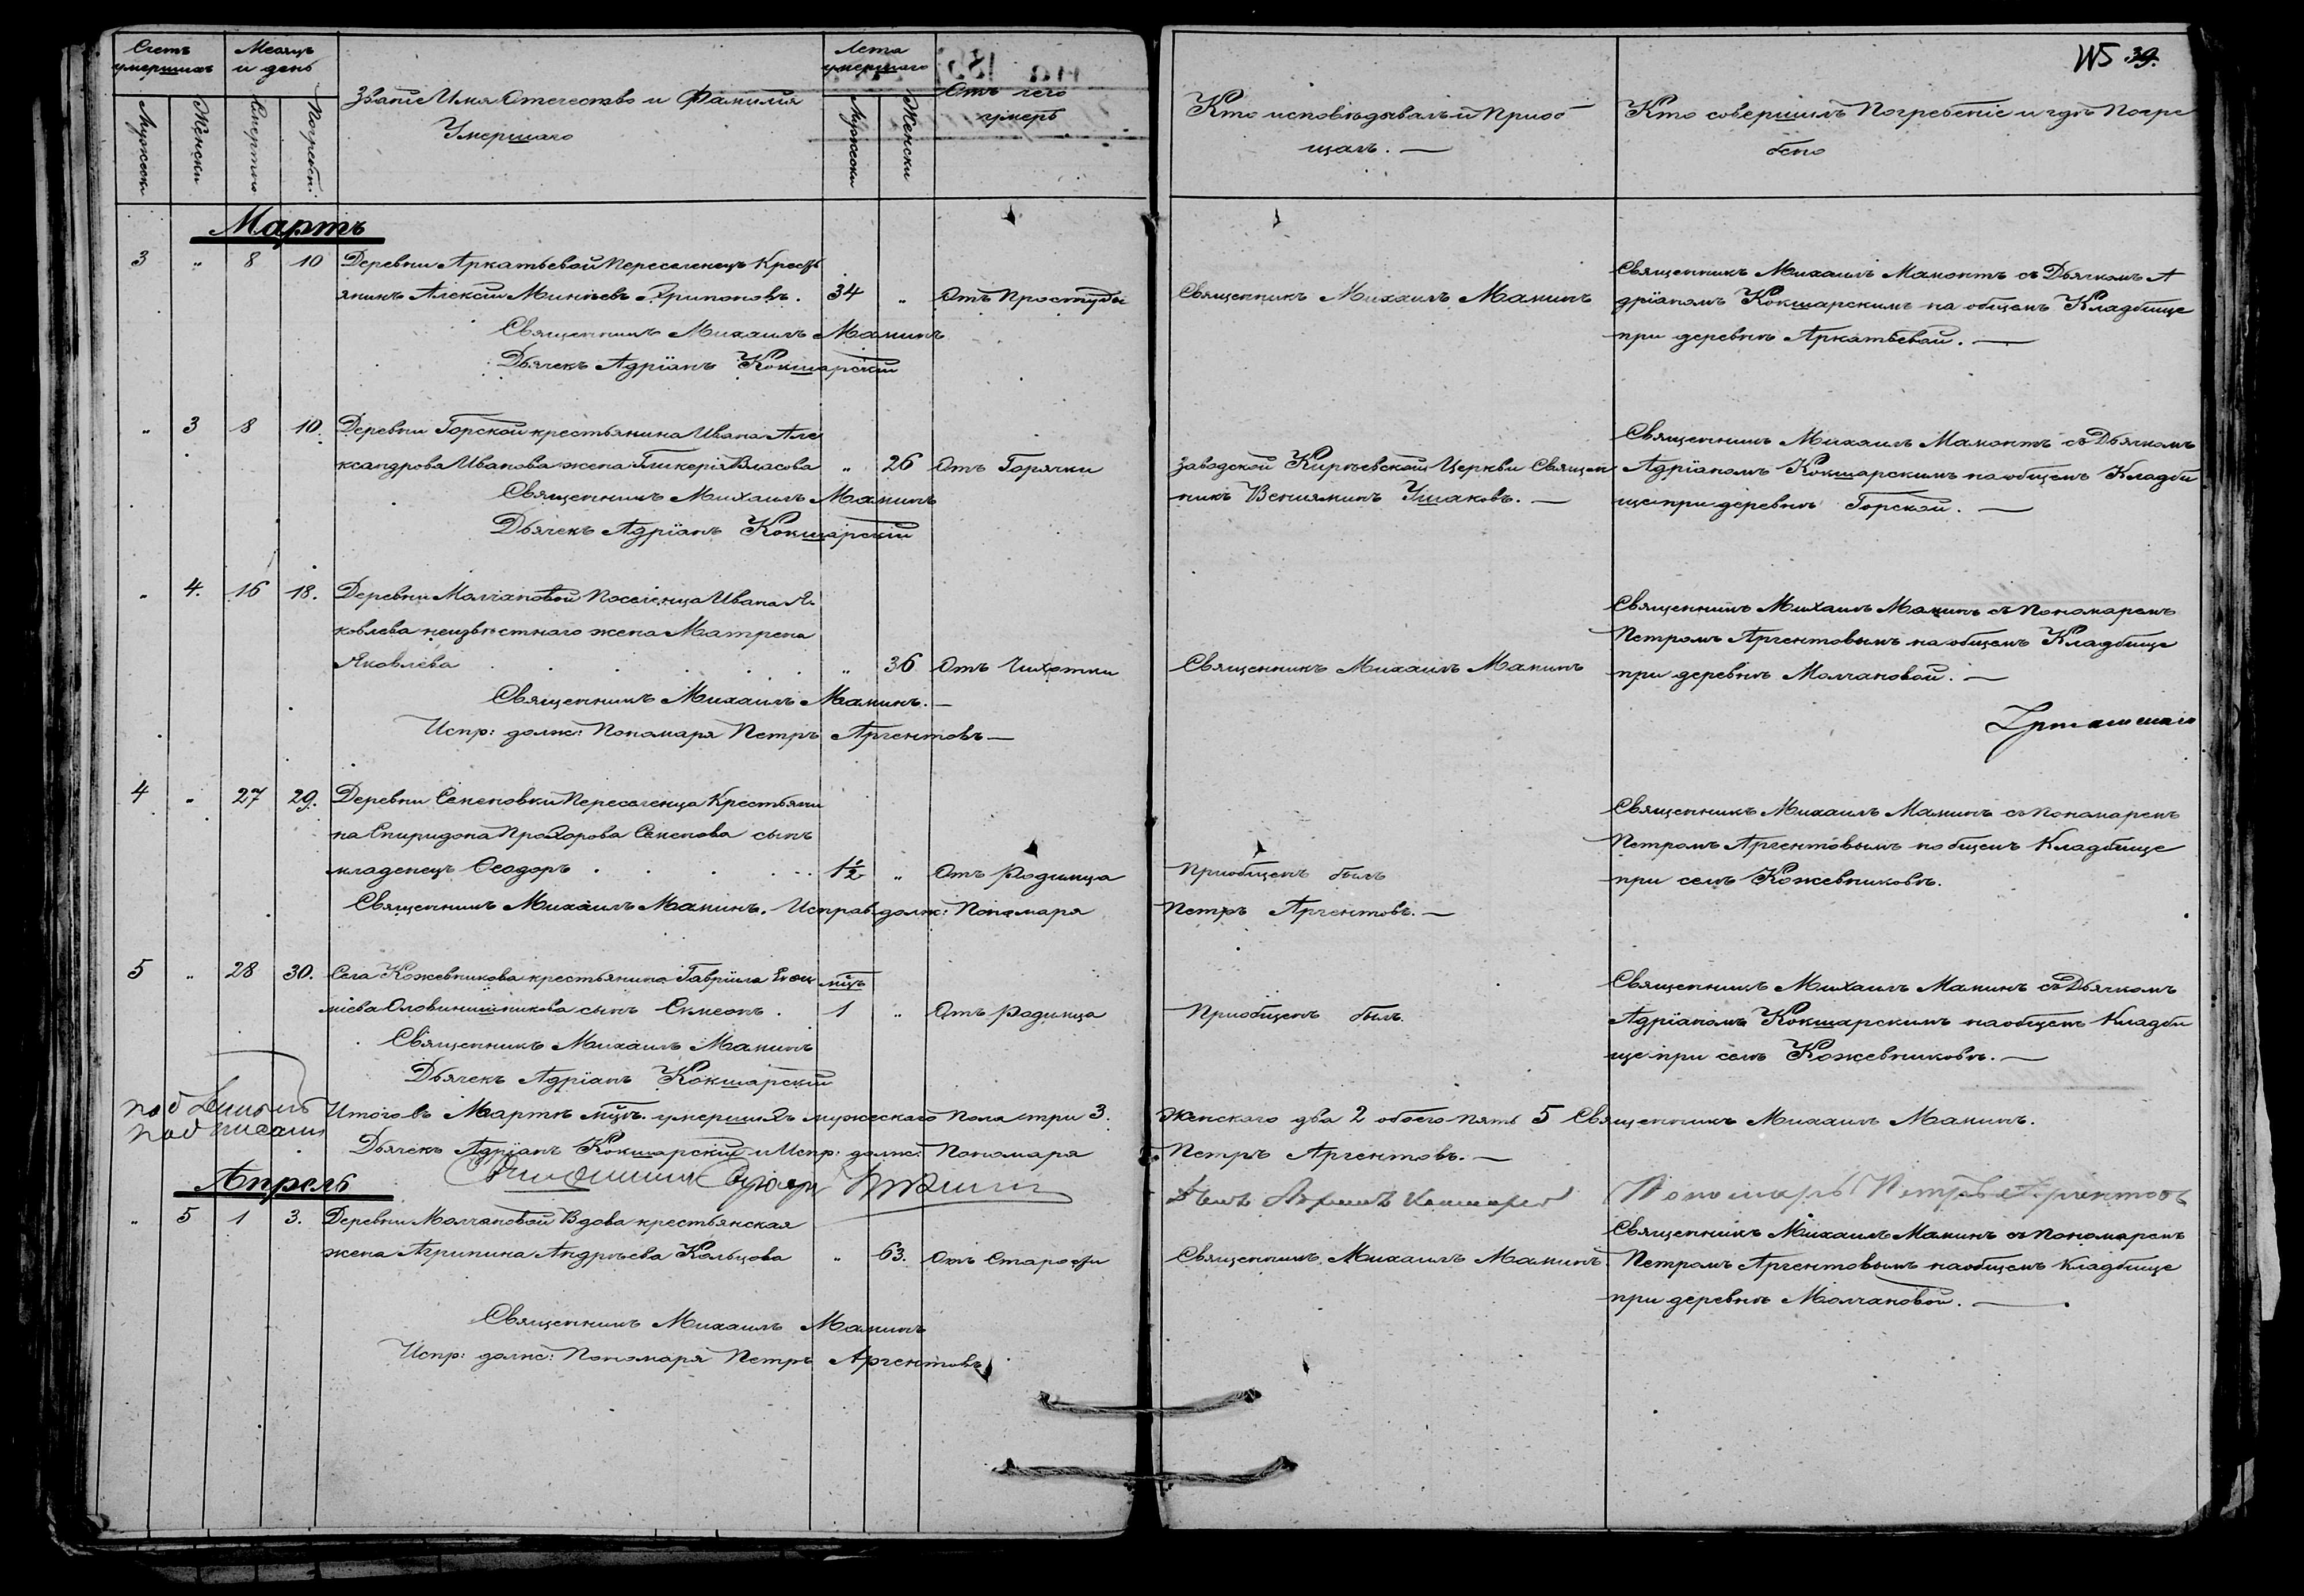 115 39.
Счетъ умершихъ
Месяцъ и день
Званіе Имя Отечество и Фамилія
Умершаго
Лета умершаго
Отъ чего
умеръ
Кто исповѣдывалъ и Приоб
щалъ. —
Кто совершилъ Погребеніе и гдѣ Погре
бено
Мужски
Женски
Смертно
Погребен:
Мужески
Женски
Мартъ
3 „ 8 10 Деревни Аркатьевой Переселенецъ Кресть
янинъ Алексій Минѣевъ 34 „ Отъ Простуды
Священникъ Михаилъ Маминъ
Дьячекъ Адріанъ Кокшарскій
Священникъ Михаилъ Маминъ
Священникъ Михаилъ съ Дьячкомъ А
дріаномъ Кокшарскимъ на общемъ Кладбище
при деревнѣ Аркатьевой. —
„ 3 8 10. Деревни Горской крестьянина Ивана Але
ксандрова Иванова жена Гликерія Власова „ 26 Отъ Горячки
Священникъ Михаилъ Маминъ
Дьячекъ Адріанъ Кокшарскій
Заводской Церкви Священ
никъ Вениаминъ Ушаковъ. —
Священникъ Михаилъ съ Дьячкомъ
Адріаномъ Кокшарскимъ на общемъ Кладби
ще при деревнѣ Горской. —
„ 4. 16 18. Деревни Молчановой Поселенца Ивана Я
ковлева неизвѣстнаго жена Матрена
Яковлева „ 36 Отъ Чихотки
Священникъ Михаилъ Маминъ. —
Испр: долж: Пономаря Петръ Аргентовъ —
Священникъ Михаилъ Маминъ
Священникъ Михаилъ Маминъ съ Пономаремъ
Петромъ Аргентовымъ на общемъ Кладбище
при деревнѣ Молчановой. —
4 „ 27 29. Деревни Семеновки Переселенца Крестьяни
на Спиридона Прохорова Семенова сынъ
младенецъ Ѳеодоръ 1½ „ Отъ Родимца
Священникъ Михаилъ Маминъ. Исправ. долж: Пономаря
Приобщенъ былъ
Петръ Аргентовъ. —
Священникъ Михаилъ Маминъ съ Пономаремъ
Петромъ Аргентовымъ на общемъ Кладбище
при селѣ Кожевниковѣ.
5 „ 28 30. Села Кожевникова крестьянина Гавріила Евѳи мцъ
міева Оловянишникова сынъ Симеонъ. 1 „ Отъ Родимца
Священникъ Михаилъ Маминъ
Дьячекъ Адріанъ Кокшарскій
Приобщенъ былъ.
Священникъ Михаилъ Маминъ съ Дьячкомъ
Адріаномъ Кокшарскимъ на общемъ Кладби
ще при селѣ Кожевниковѣ. —
Итого въ Мартѣ мцѣ умершихъ мужескаго пола три 3. Женскаго два 2 обоего пять 5 Священникъ Михаилъ Маминъ.
Дьячекъ Адріанъ Кокшарскій и Испр: долж: Пономаря Петръ Аргентовъ. —
Пономарь Петръ Аргентовъ
Апрель
„ 5 1 3. Деревни Молчановой Вдова крестьянская
жена Агрипина Андрѣева Кольцова „ 63. Отъ Старости
Священникъ Михаилъ Маминъ
Испр: долж: Пономаря Петръ Аргентовъ
Священникъ Михаилъ Маминъ.
Священникъ Михаилъ Маминъ съ Пономаремъ
Петромъ Аргентовымъ на общемъ кладбище
при деревнѣ Молчановой. —